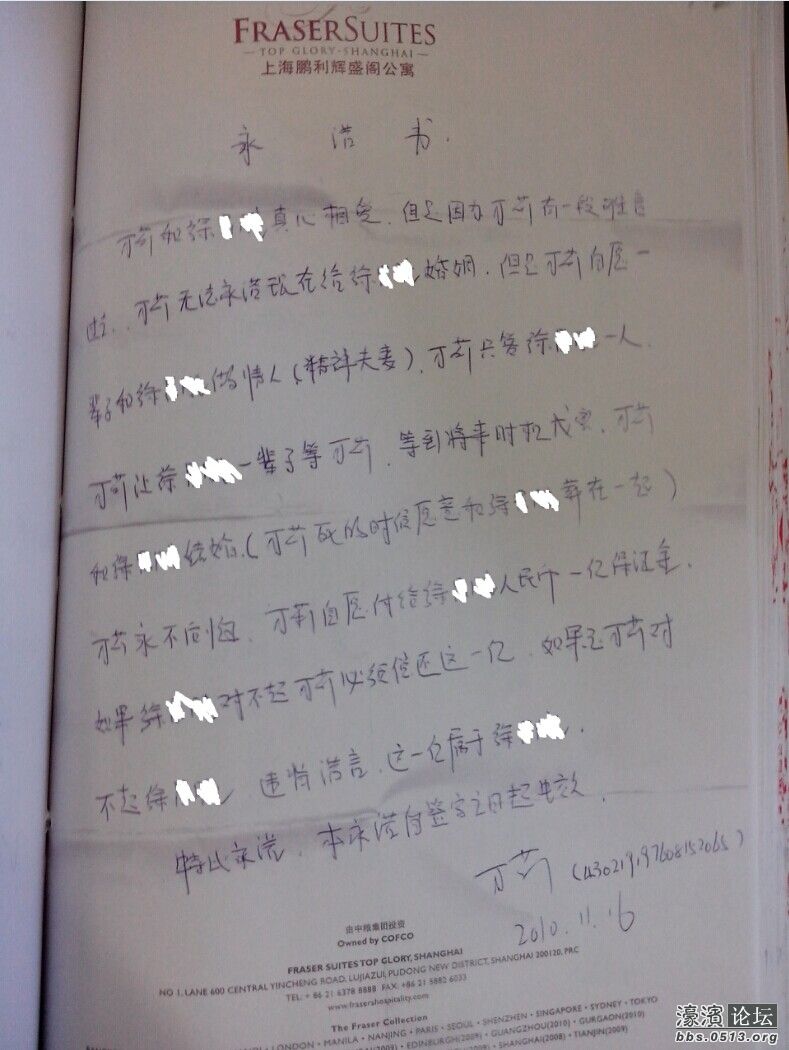 FRASER SUITES
TOP GLORY · SHANGHAI
上海鹏利辉盛阁公寓
承 诺 书.
万莉和徐 真心相爱，但是因为万莉有一段难言
万莉无法承诺现在给徐 婚姻，但是万莉自愿一
辈子和徐 做情人（精神夫妻），万莉只答徐 一人，
万莉让徐 一辈子等万莉，等到将来时机成熟，万莉
和徐 结婚。（万莉死的时候愿意和徐 葬在一起）
万莉永不后悔，万莉自愿付给徐 人民币一亿保证金，
如果徐 对不起万莉必须偿还这一亿，如果是万莉对
不起徐 违背诺言，这一亿属于徐 ，
特此承诺，本承诺自签字之日起生效。
万莉
2010.11.16
由中粮集团投资
Owned by COFCO
FRASER SUITES TOP GLORY, SHANGHAI
NO 1, LANE 600 CENTRAL YINCHENG ROAD, LUJIAZUI, PUDONG NEW DISTRICT, SHANGHAI 200120, PRC
TEL: + 86 21 6378 8888 FAX: +86 21 5882 6033
www.frasershospitality.com
The Fraser Collection
LONDON · MANILA · NANJING · PARIS · SEOUL · SHENZHEN · SINGAPORE · SYDNEY · TOKYO
EDINBURGH(2009) · GUANGZHOU(2010) · GURGAON(2010)
SHANGHAI(2008) · TIANJIN(2009)
濠滨论坛
bbs.0513.org